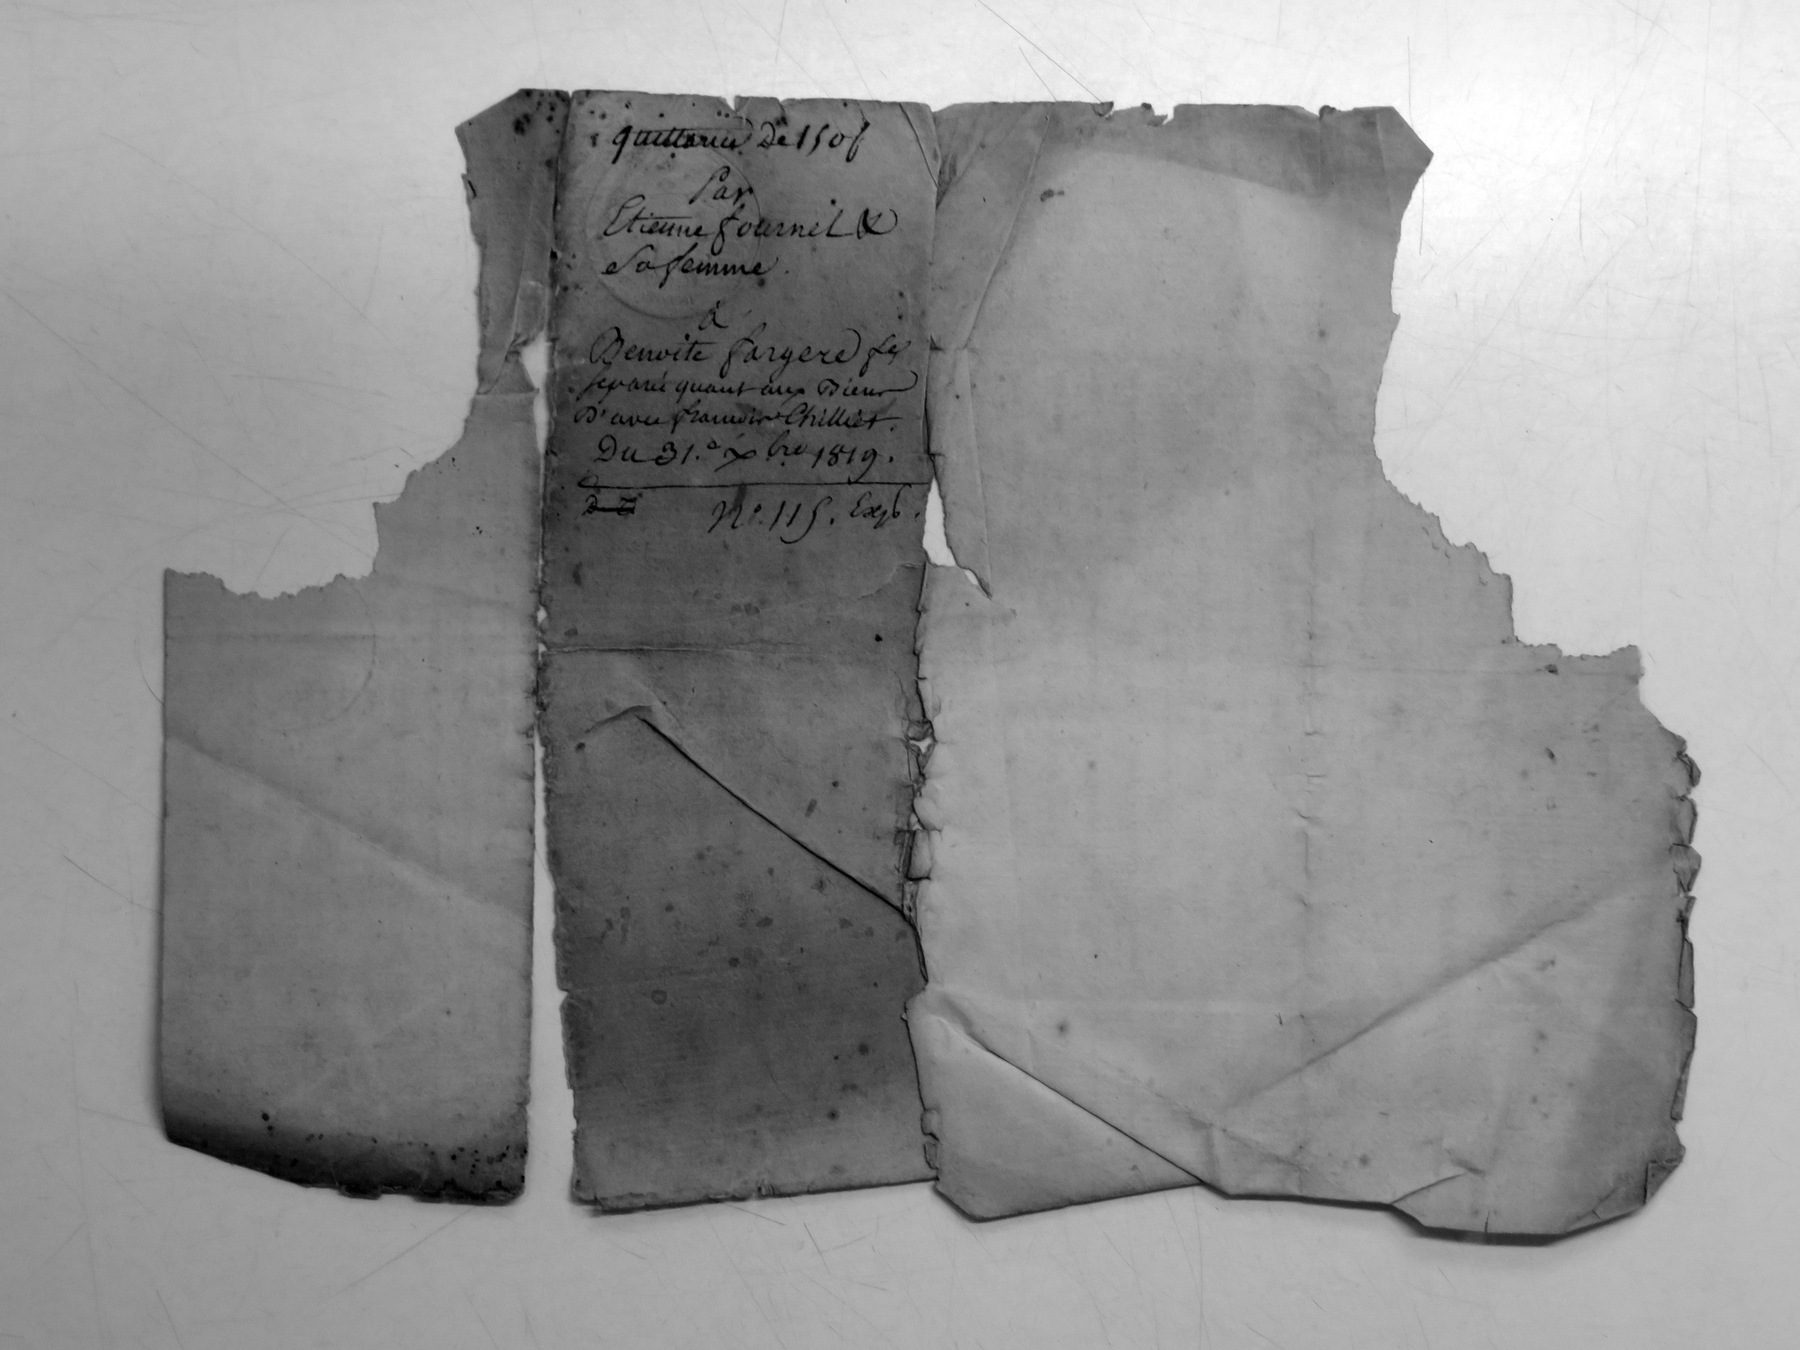 quittance De 150 f
Par
Etienne fournel &
Sa femme.
à
Benoite fargere fe
separée quant aux Biens
D'avec francois Chilliet.
Du 31.e Xbre 1819.
N.o 115. Exp.